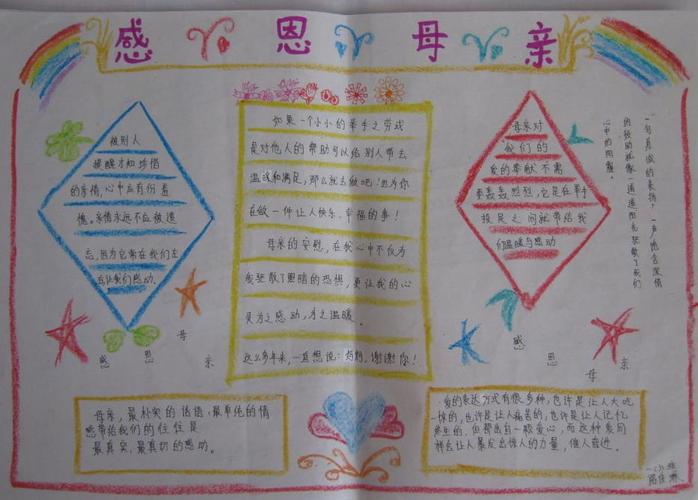 感恩母亲
被别人
提醒才知珍惜
的亲情,心中应有份着
愧。亲情永远不应被遗
忘,因为它常在我们左
右让我们感动.
如果一个小小的举手之劳或
是对他人的帮助可以给别人带去
温暖和满足,那么就去做吧!因为你
在做一件让人快乐、幸福的事!
母亲的安慰,在我心中不仅为
我驱散了黑暗的恐惧,更让我的心
灵为之感动,为之温暖。
这么多年来,一直想说:妈妈,谢谢你!
母亲对
我们的
爱的奉献不需
轰轰烈烈,它是在举手
投足之间就带给我
们温暖与感动
一句真诚的表扬,一声饱含深情
的鼓励就像一道道阳光驱散了我们
心中的阴霾。
感恩母亲
感恩母亲
母亲,最朴实的话语,最单纯的情
感带给我们的往往是
最真实、最真切的感动。
爱的表达方式有很多种,也许是让人大吃
一惊的,也许是让人痛苦的,也许是让人记忆
终生的,但都出自一颗爱心,而这种爱同
样会让人暴发出惊人的力量,催人奋进。